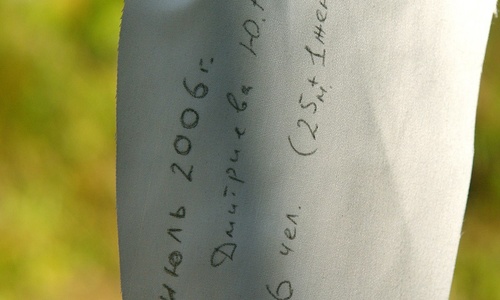 июль 2006г.
Дмитриева Ю.
6 чел. (25м + 1жен